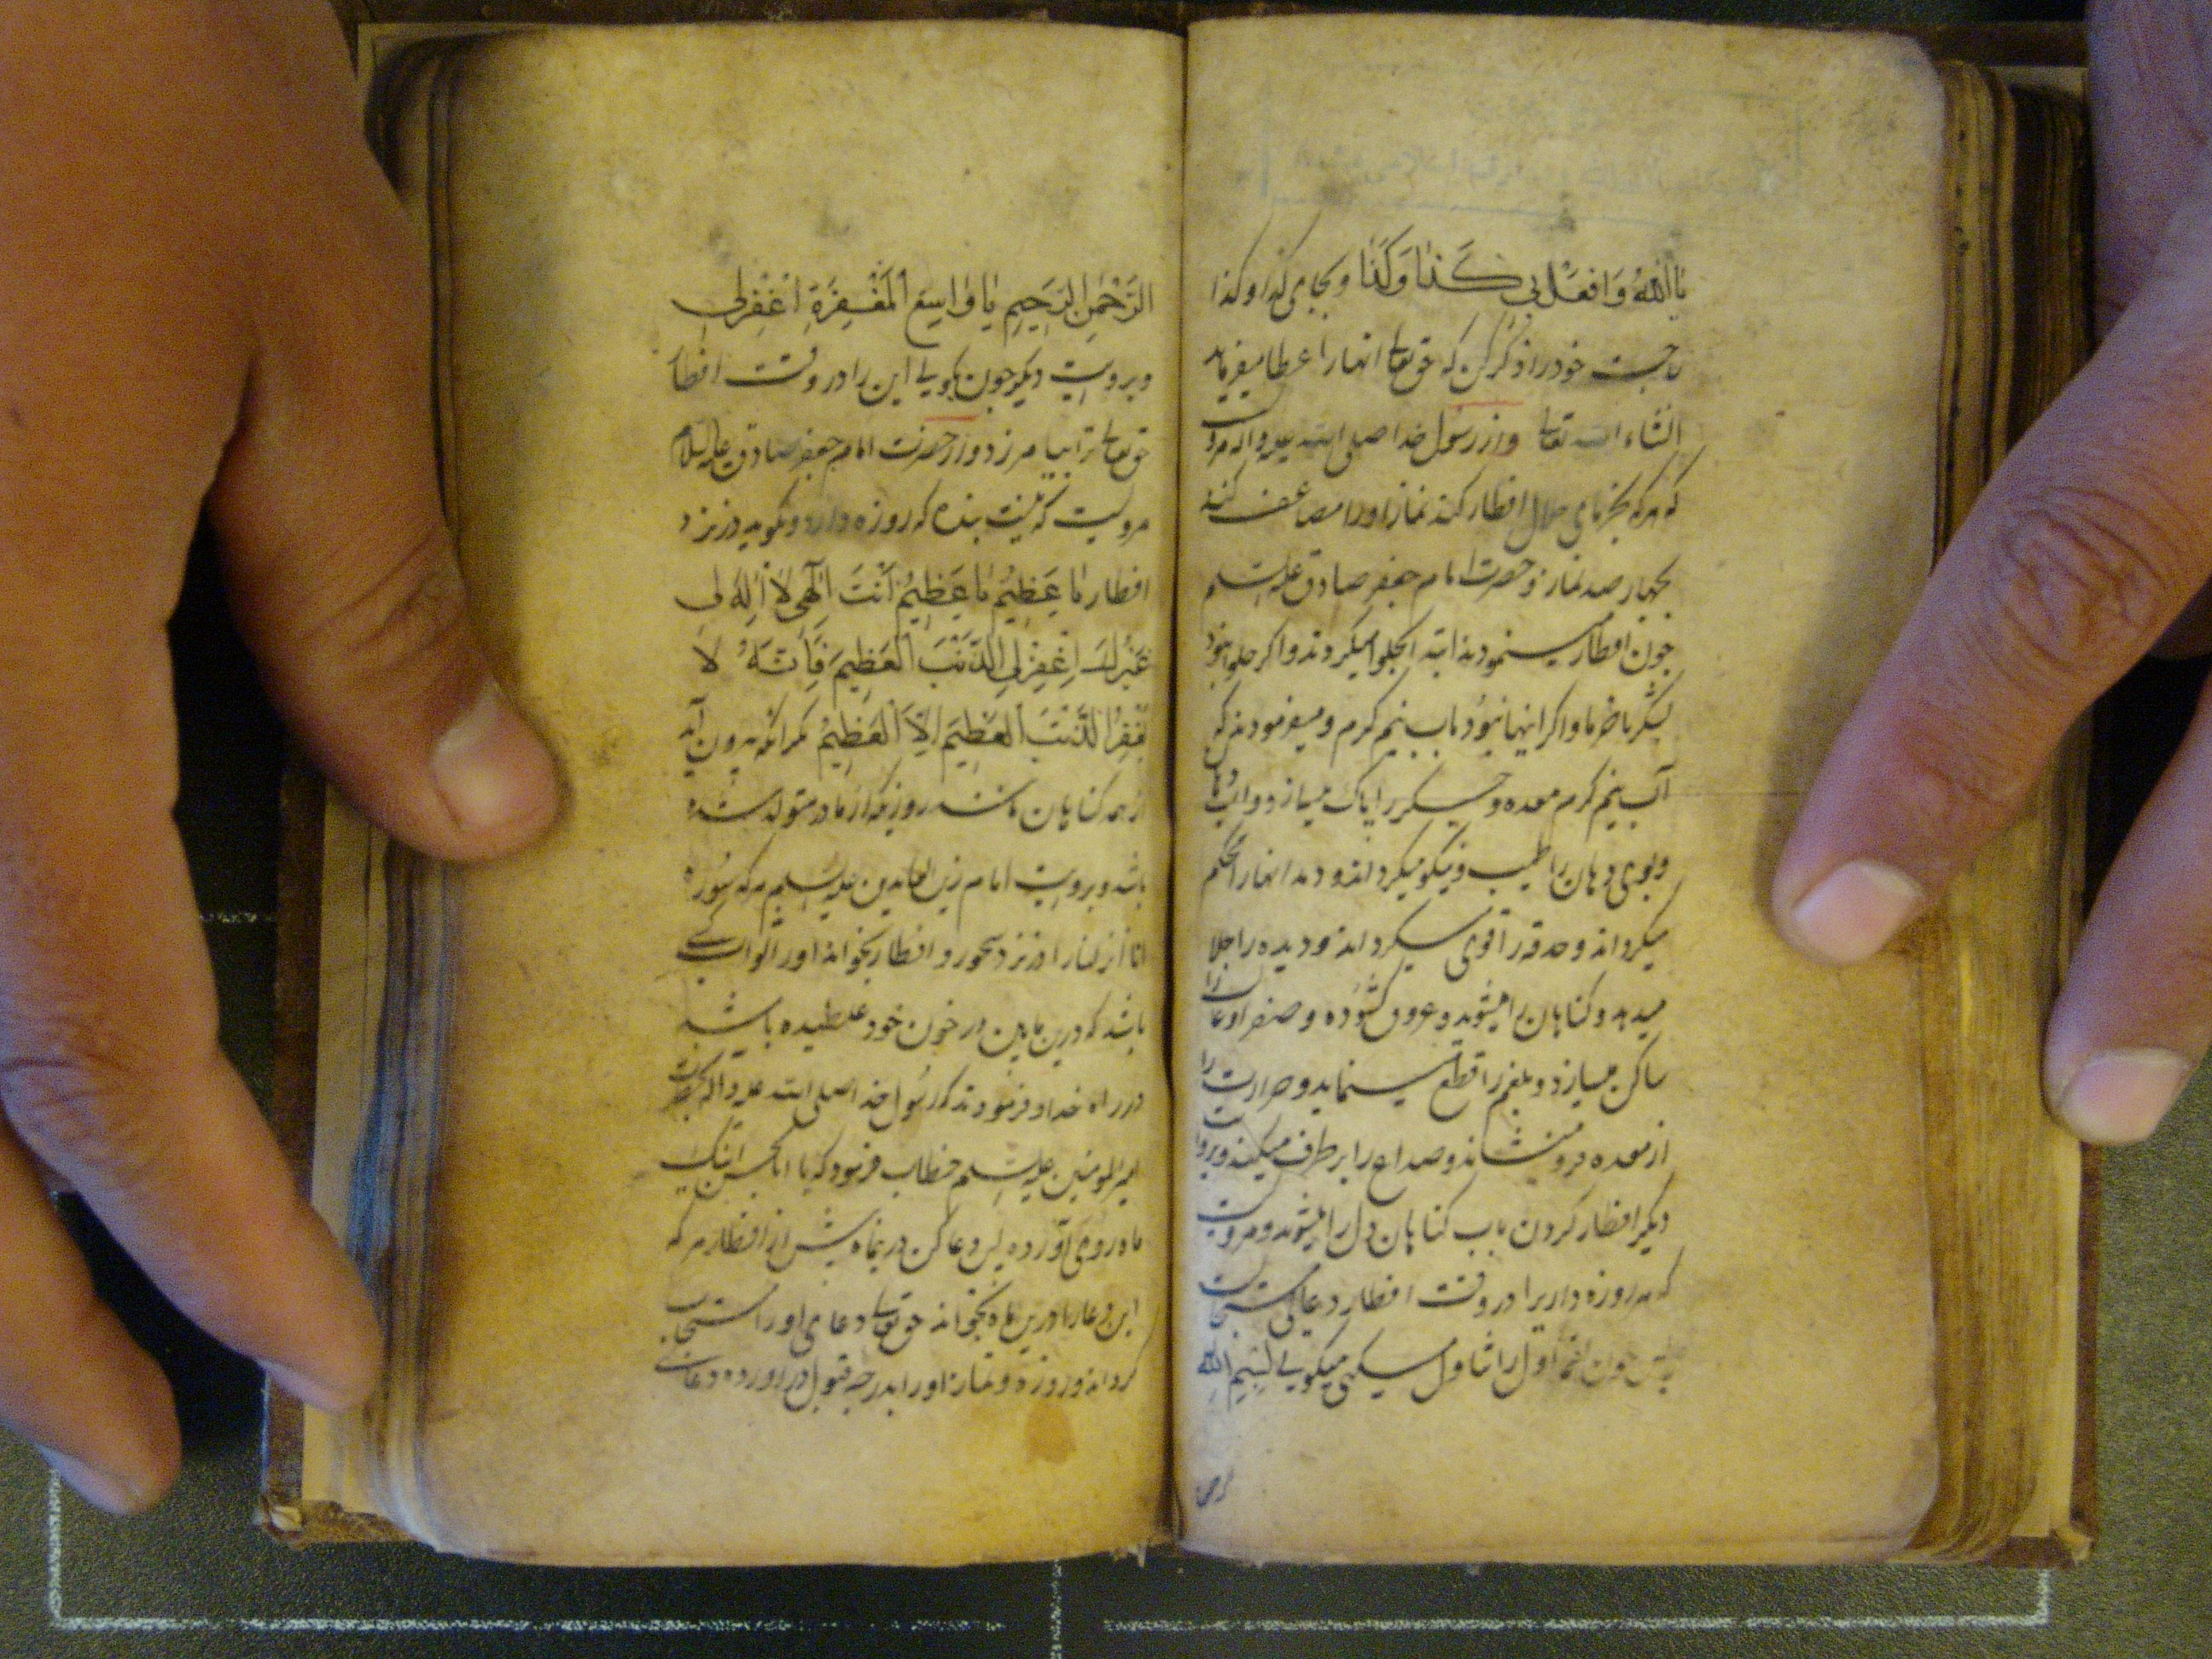 یا اللّٰهُ وَافعَل بی کَذا وَکَذا و بجای کذا و کذا
حاجت خود را ذکر کن که حق تعالی انها را عطا میفرماید
انشاء الله تعالی و از رسول خدا صلی الله علیه و اله مرویست
که هر که بخرمای حلال افطار کند نماز او را مضاعف کنند
بچهار صد نماز و حضرت امام جعفر صادق علیه السلم
چون افطار مینمودند ابتدا بحلوا میکردند و اکر حلوا نبود
بشکر یا خرما و اکر اینها نبود باب نیم کرم و میفرمودند که
آب نیم کرم معده و جیکر را پاک میسازد و
و بوی دهان را طیب و نیکو میکرداند و دندانها را محکم
میکرداند و حدقه را قوی میکرداند و دیده را جلا
میدهد و کناهان را میشوید و عروق شوریده و صفرای غالب را
ساکن میسازد و بلغم را قطع مینماید و حرارت را
از معده فرو مینشاند و صداع را بر طرف میکند و بروایت
دیکر افطار کردن باب کناهان دل را میشوید و مرویست
که هر روزه داریرا در وقت افطار دعای مستجابست
پس چون لقمۀ اول را تناول میکنی میکویی بِسْمِ اللهِ
الرحمن
الرَّحْمٰنِ الرَّحِیمِ یٰا وٰاسِعَ الْمَغْفِرَةِ اغْفِرْلی
و بروایت دیکر چون بکویی این را در وقت افطار
حق تعالی ترا بیامرزد و از حضرت امام جعفر صادق علیه السلام
مرویست که نیست بنده که روزه دارد و بکوید در نزد
افطار یٰا عَظِیمُ یٰا عَظِیمُ اَنْتَ اِلٰهی لاٰ اِلٰهَ لی
غَیْرُکَ اِغْفِرْ لِیَ الذَّنْبَ الْعَظِیمَ فَاِنَّهُ لاٰ
یَغْفِرُ الذَّنْبَ الْعَظِیمَ اِلاَّ الْعَظِیمُ مکر انکه بیرون آید
از همه کناهان مانند روزیکه از مادر متولد شده
باشد و بروایت امام زین العابدین علیه السلم هر که سوره
انا انزلناه را در نزد سحور و افطار بخواند او را ثواب کسی
باشد که در این مابین در خون خود غلطیده باشد
در راه خدا و فرمودند که رسول خدا صلی الله علیه و اله بحضرت
امیر المومنین علیه السلم خطاب فرمود که یا ابا الحسن اینک
ماه روی آورده پس دعا کن در این ماه پیش از افطار هر که
این دعا را در این ماه بخواند حق تعالی دعای او را مستجاب
کرداند و روزه و نماز او را بدرجه قبول در آورد و دعا